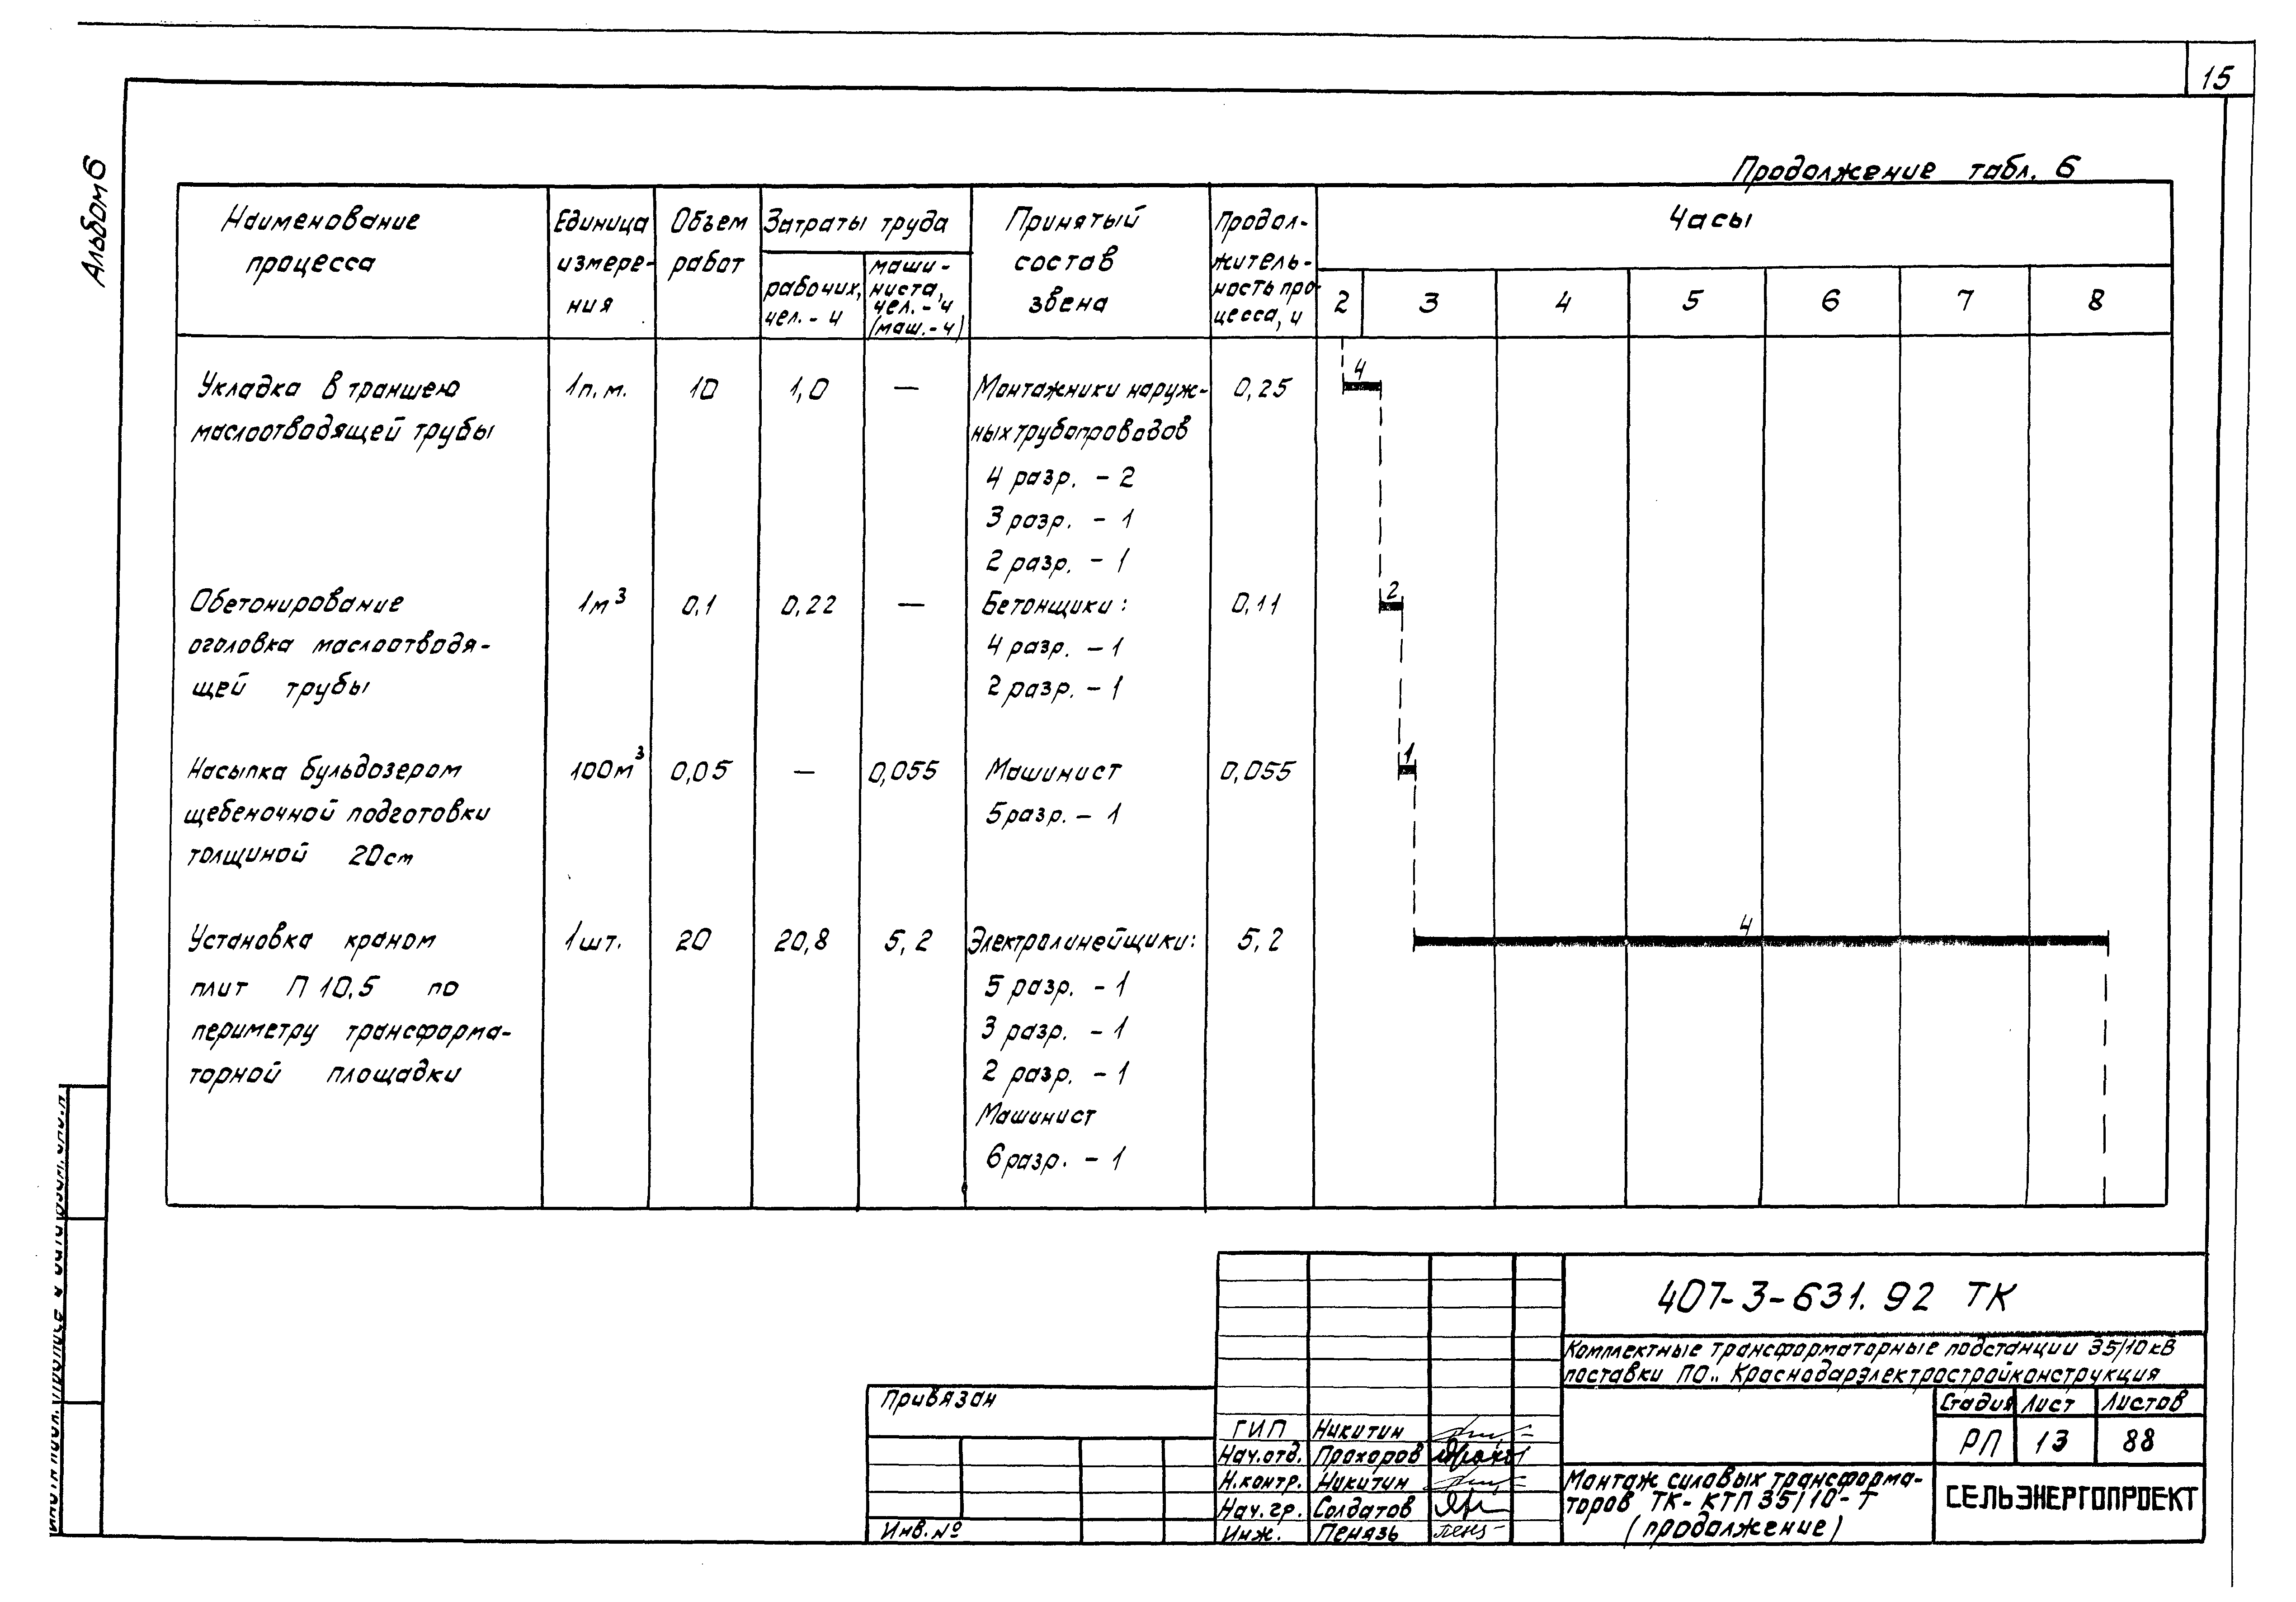 15
Альбом 6
Продолжение табл. 6
Наименование процесса
Единица измере-ния
Объем работ
Затраты труда
рабочих, чел.-ч
маши-ниста, чел.-ч (маш.-ч)
Принятый состав звена
Продол-житель-ность про-цесса, ч
Часы
2 3 4 5 6 7 8
Укладка в траншею 1п.м. 10 1,0 — Монтажники наруж- 0,25 4
маслоотводящей трубы ных трубопроводов
4 разр. - 2
3 разр. - 1
2 разр. - 1
Обетонирование 1м³ 0,1 0,22 — Бетонщики: 0,11 2
оголовка маслоотводя- 4 разр. - 1
щей трубы 2 разр. - 1
Насыпка бульдозером 100м³ 0,05 — 0,055 Машинист 0,055 1
щебеночной подготовки 5 разр. - 1
толщиной 20см
Установка краном 1шт. 20 20,8 5,2 Электролинейщики: 5,2 4
плит П 10,5 по 5 разр. - 1
периметру трансформа- 3 разр. - 1
торной площадки 2 разр. - 1
Машинист
6 разр. - 1
407-3-631.92 ТК
Комплектные трансформаторные подстанции 35/10кВ
поставки ПО „Краснодарэлектростройконструкция
Привязан
Инв. №
ГИП Никитин
Нач.отд. Прохоров
Н.контр. Никитин
Нач.гр. Солдатов
Инж. Пенязь
Стадия Лист Листов
РП 13 88
Монтаж силовых трансформа-
торов ТК-КТП 35/10-Т
(продолжение)
СЕЛЬЭНЕРГОПРОЕКТ